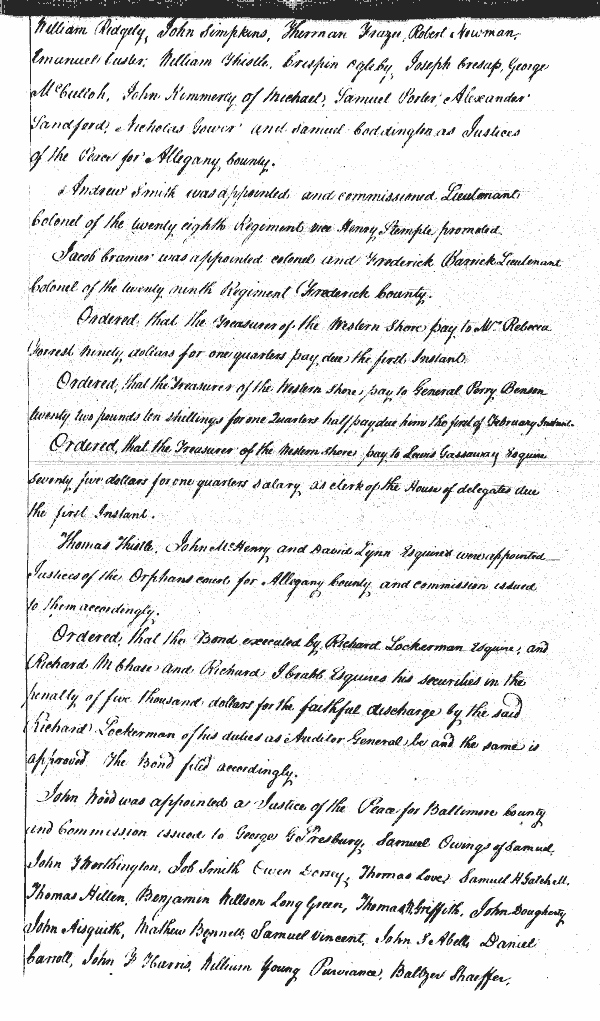 William Ridgely, John Simpkins, Therman Frazee, Robert Newman,
Emanuel Custer, William Thistle, Crispin Ogleby, Joseph Cresap, George
McCulloh, John Kimmerly of Michael, Samuel Porter, Alexander
Sandford, Nicholas Gower and Samuel Coddington as Justices
of the Peace for Allegany County.
Andrew Smith was appointed and commissioned Lieutenant
Colonel of the twenty eighth Regiment vice Henry Stemple promoted.
Jacob Cramer was appointed colonel and Frederick Barrick Lieutenant
Colonel of the twenty ninth Regiment Frederick County.
Ordered, that the Treasurer of the Western Shore pay to Mrs. Rebecca
Forrest ninety dollars for one quarters pay due the first Instant.
Ordered, that the Treasurer of the Western Shore, pay to General Perry Benson
twenty two pounds ten shillings for one Quarters half pay due him the first of February Instant.
Ordered, that the Treasurer of the Western Shore pay to Lewis Gassaway Esquire
seventy five dollars for one quarters salary as clerk of the House of delegates due
the first Instant.
Thomas Thistle, John McHenry and David Lynn Esquires were appointed
Justices of the Orphans court for Allegany County and commission issued
to them accordingly.
Ordered, that the Bond executed by Richard Lockerman Esquire, and
Richard M Chase and Richard I Crabb Esquires his securities in the
penalty of five thousand dollars for the faithful discharge by the said
Richard Lockerman of his duties as Auditor General be and the same is
approved. The Bond fil'd accordingly.
John Wood was appointed a Justice of the Peace for Baltimore County
and Commission issued to George G Presbury, Samuel Owings of Samuel,
John T Worthington, Job Smith Owen Dorsey, Thomas Love, Samuel H Gatchell.
Thomas Hillen, Benjamin Willson Long Green, Thomas W Griffith, John Dougherty
John Aisquith, Mathew Bennett, Samuel Vincent, John S Abell, Daniel
Carroll, John F Harris, William Young Purviance, Baltzer Shaeffer,